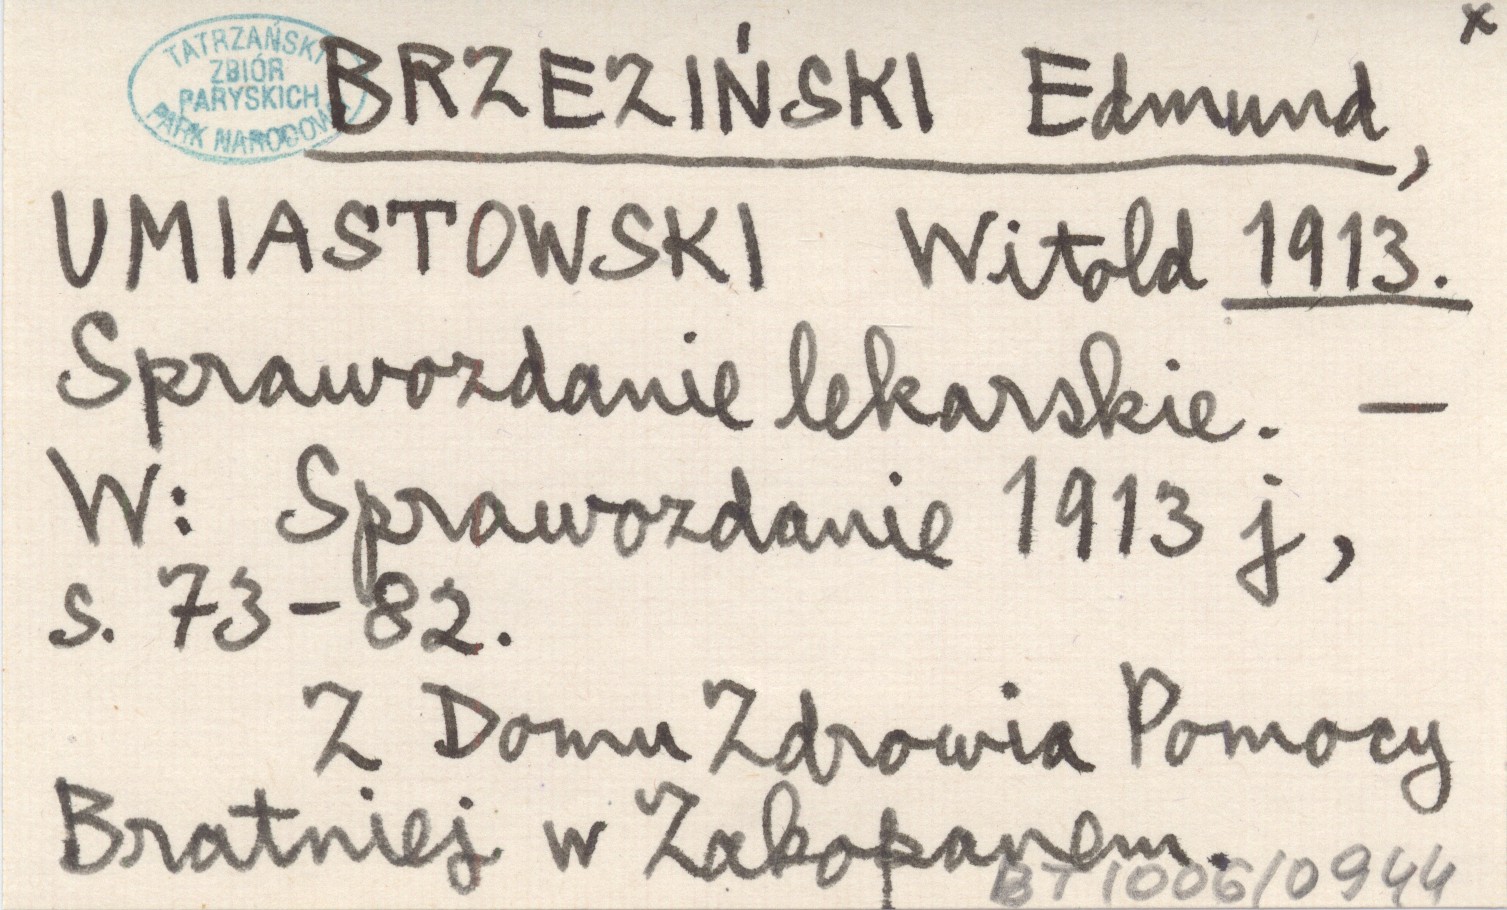 x
TATRZAŃSKI
ZBIÓR
PARYSKICH
PARK NARODOWY
BRZEZIŃSKI Edmund,
UMIASTOWSKI Witold 1913.
Sprawozdanie lekarskie. —
W: Sprawozdanie 1913 j,
s. 73-82.
Z Domu Zdrowia Pomocy
Bratniej w Zakopanem.
BT 1006/0944